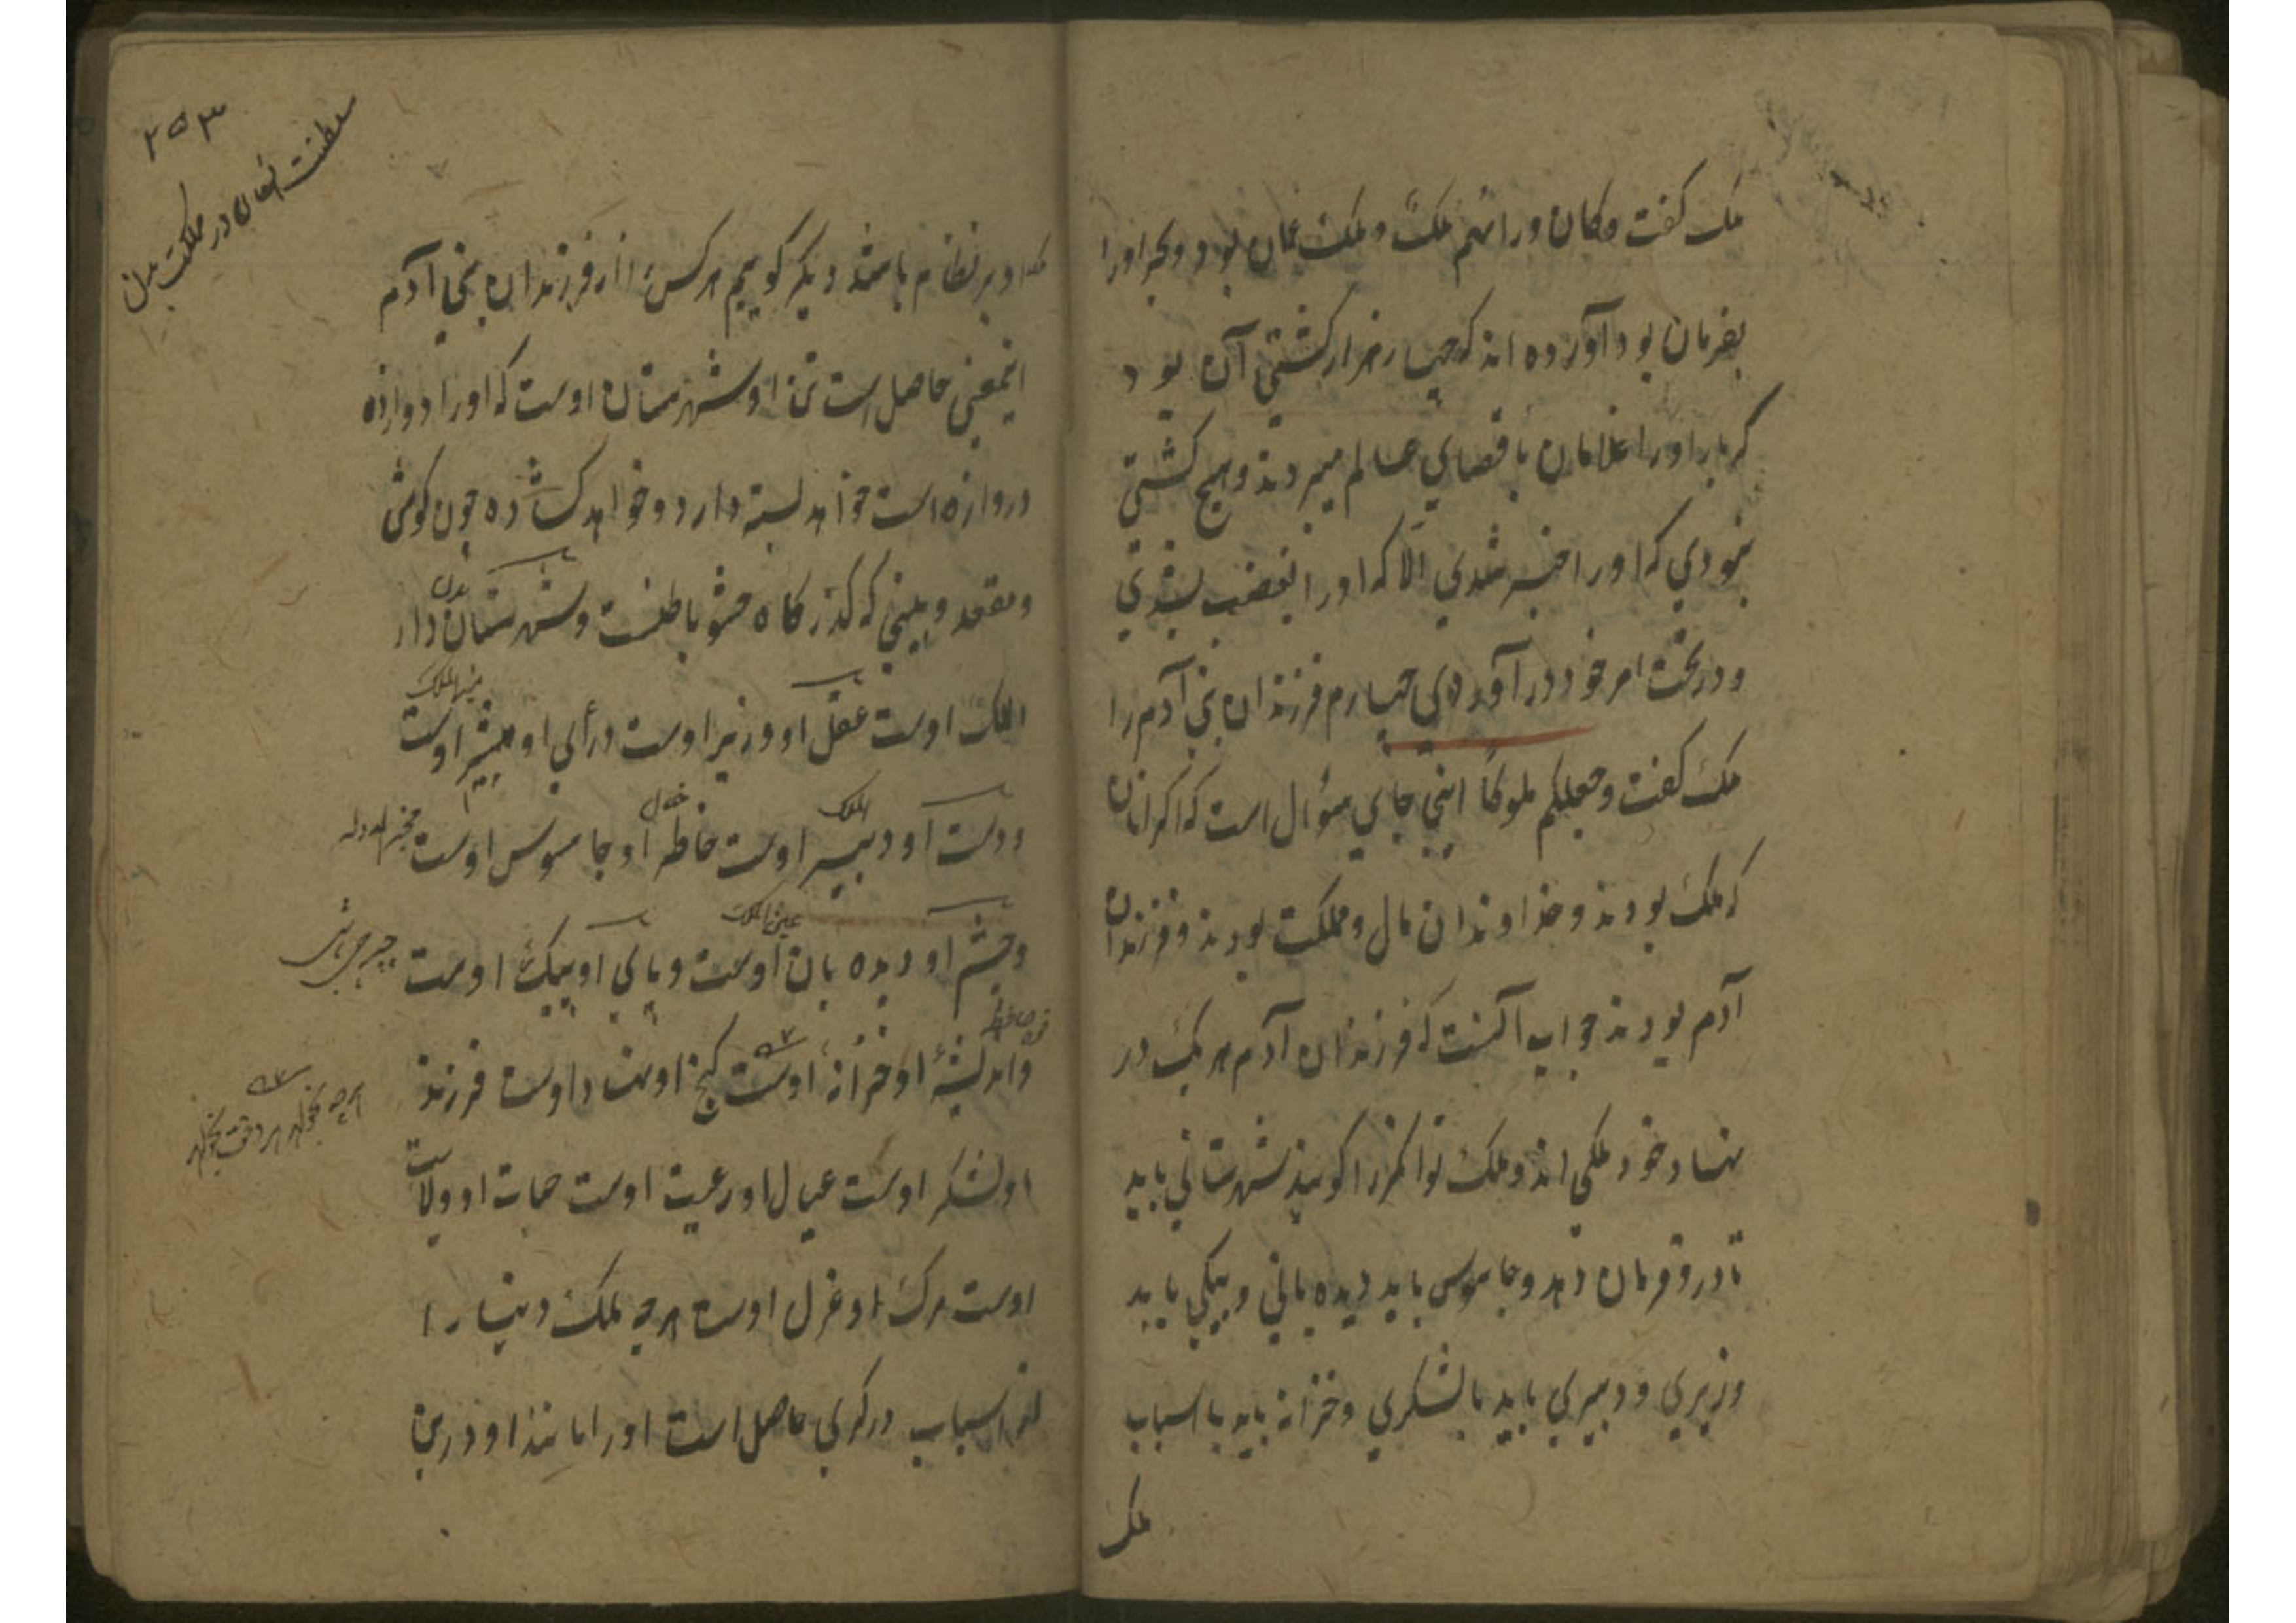 ملک گفت وکان وراءهم ملک و ملک عمان بود و بحر او را
بفرمان بود آورده اند که چهار هزار کشتی آن بود
که بار او را غلامان باقصای عالم میبردند و هیچ کشتی
نبودی که او را خبر شدی الا که او را بغضب بستدی
و در تحت امر خود در آوردی چهارم فرزندان بنی آدم را
ملک گفت وجعلکم ملوکا اینجای سؤال است که اگر آنان
که ملک بودند و خداوندان مال و مملکت بودند و فرزندان
آدم بودند جواب آنست که فرزندان آدم هر یک در
نهاد خود ملکی اند و ملک توانگر را گویند شهرستانی باید
تا درو فرمان دهد و جاسوس باید دیده بانی و پیکی باید
وزیری و دبیری باید با لشکری و خزانه باید با اسباب
ملک
۲۵۳
سلطنت انسان در مملکت بدن
ملک او بر نظام باشد دیگر گوییم هر کس را از فرزندان بنی آدم
اینمعنی حاصل است تن او شهرستان اوست که او را دوازده
دروازه است خواهد بسته دارد و خواهد گشاده چون گوش
و مقعد و بینی که گذرگاه حشو باطنست و شهرستان دار
بدن
الملک اوست عقل او وزیر اوست و رأی او مشیر اوست
مشیر الملک
و دست او دبیر اوست خاطر او جاسوس اوست
الملک
خیال
مخبر الدوله
و چشم او دیده بان اوست و پای او پیک اوست
عین الملک
و اندیشهٔ او خزانهٔ اوست گنج اوست و اوست فرزند
قوه حافظه
او لشکر اوست عیال او رعیت اوست حیات او ولایت
اوست مرگ او عزل اوست هر چه ملک دنیا را
از اسباب در گری حاصل است او را مانند او درین